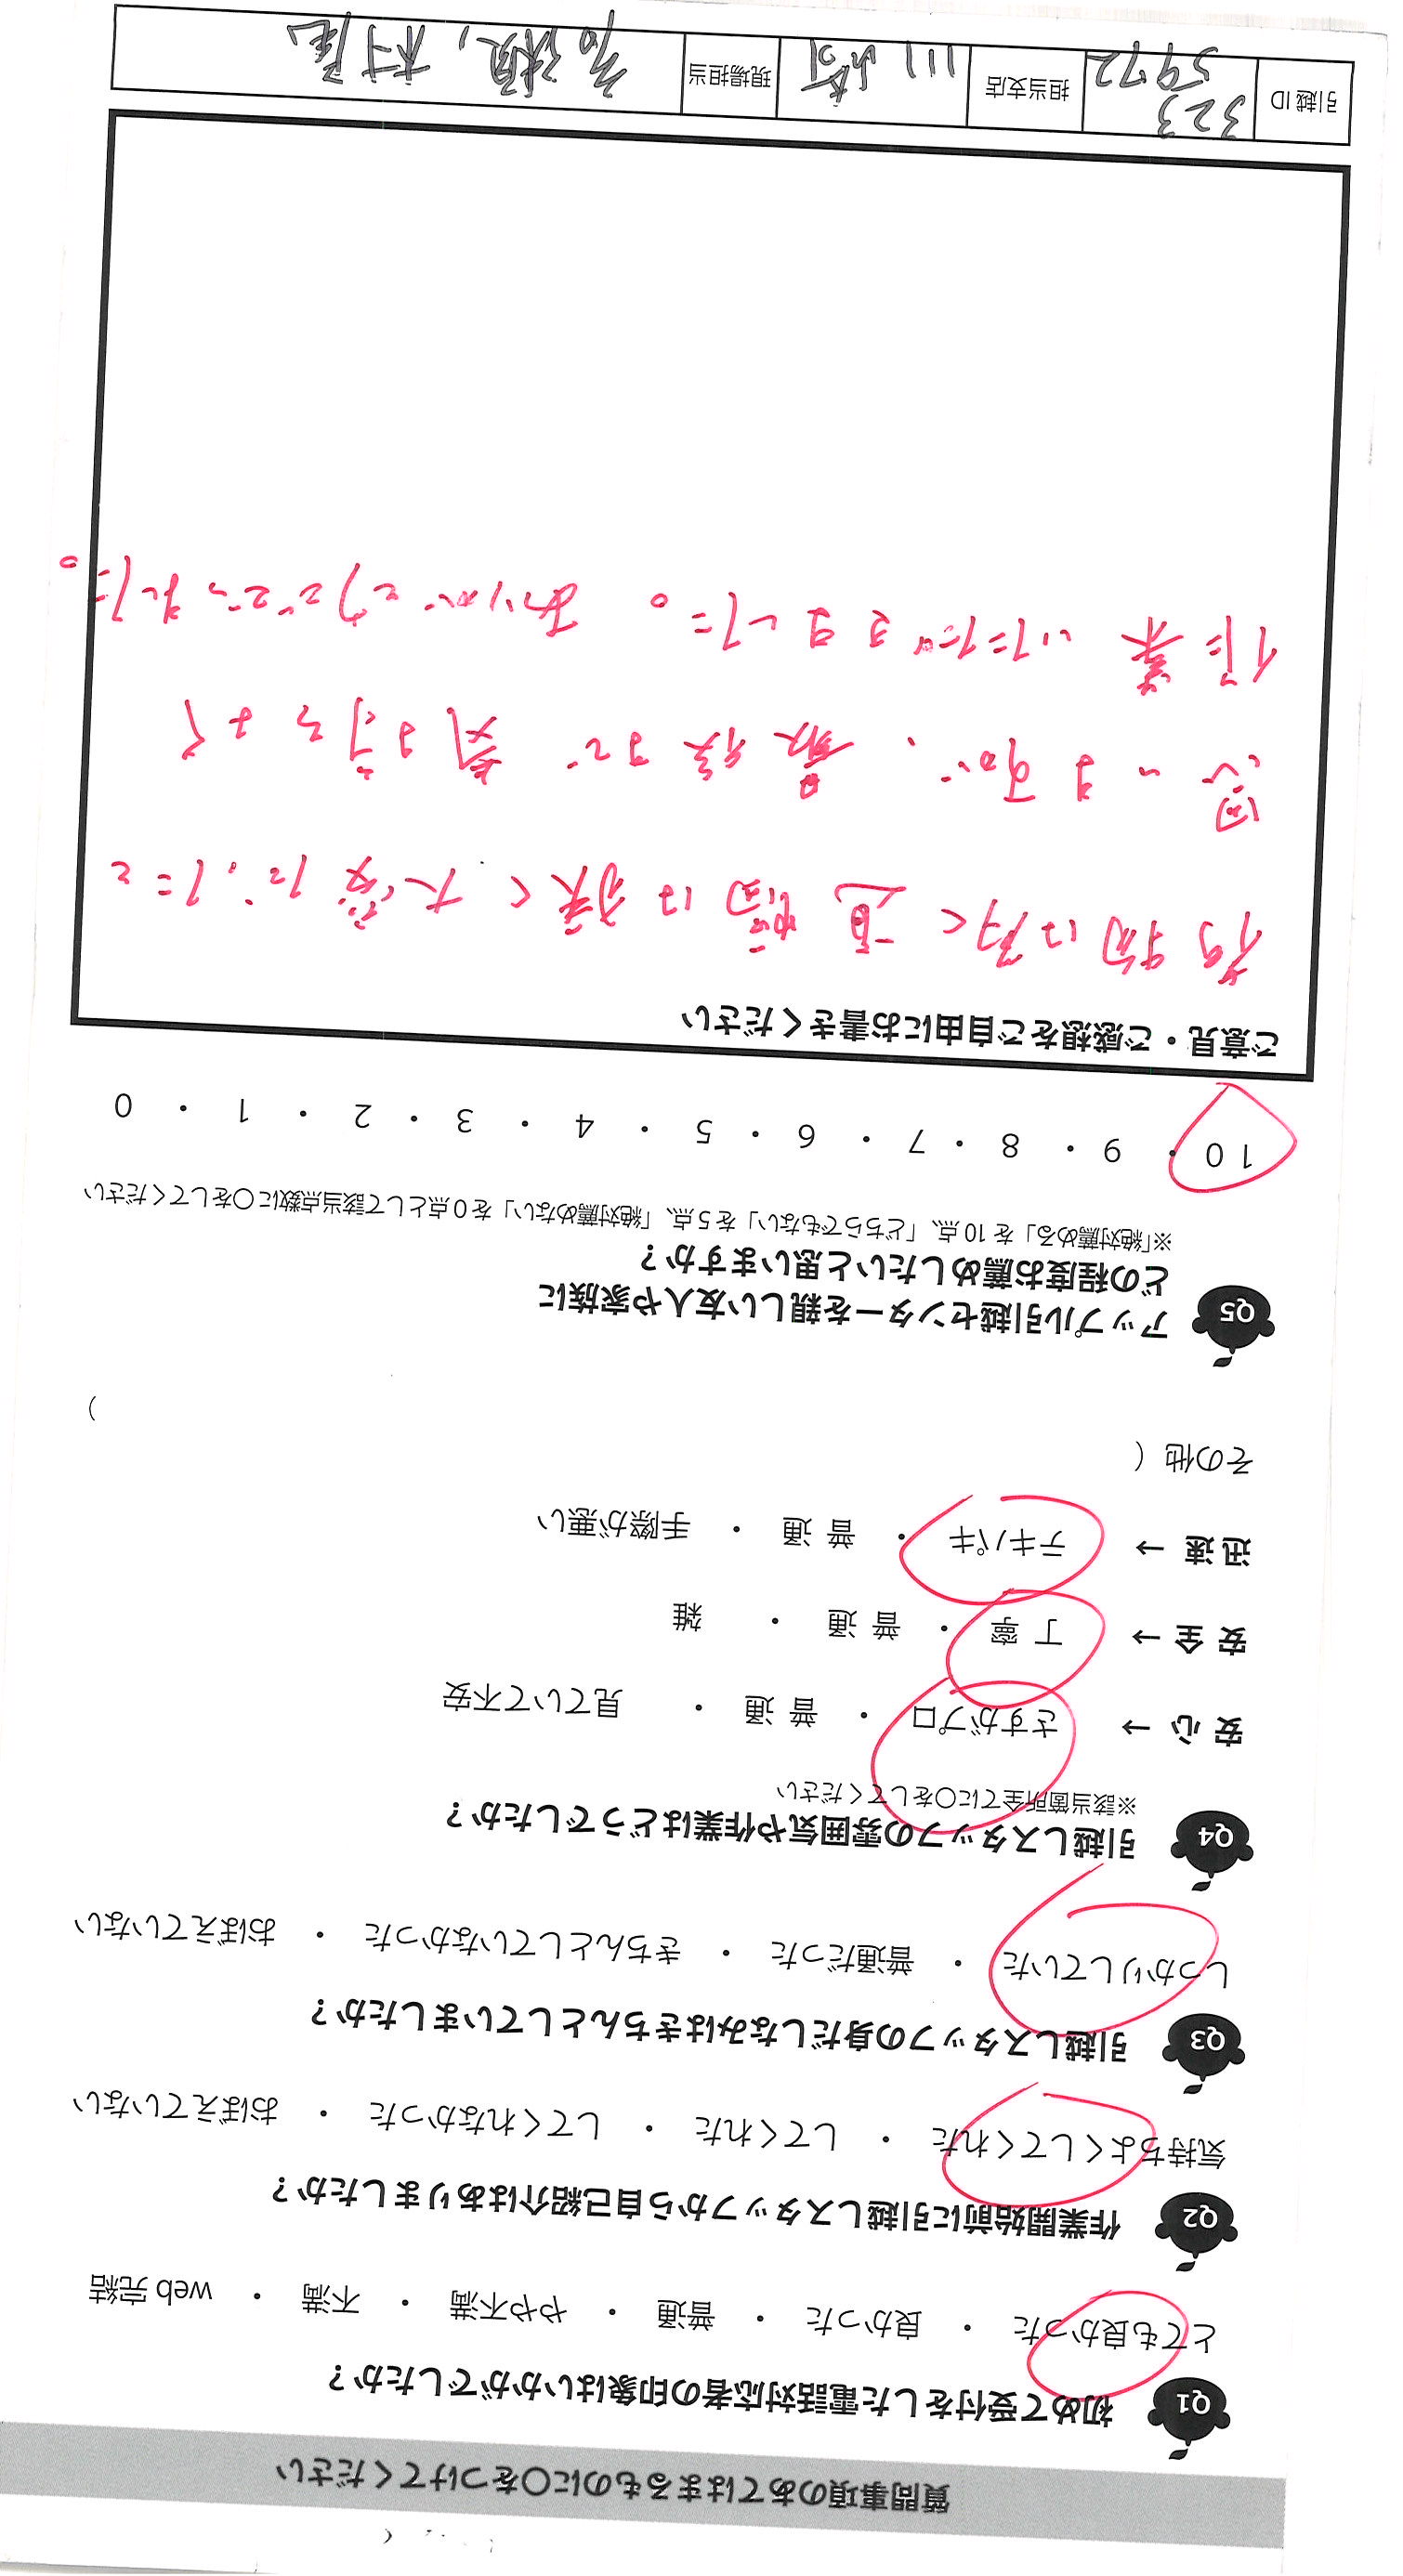 質問事項のあてはまるものに○をつけてください
Q1 初めて受付をした電話対応者の印象はいかがでしたか？
とても良かった ・ 良かった ・ 普通 ・ やや不満 ・ 不満 ・ web完結
Q2 作業開始前に引越しスタッフから自己紹介はありましたか？
気持ちよくしてくれた ・ してくれた ・ してくれなかった ・ おぼえていない
Q3 引越しスタッフの身だしなみはきちんとしていましたか？
しっかりしていた ・ 普通だった ・ きちんとしていなかった ・ おぼえていない
Q4 引越しスタッフの雰囲気や作業はどうでしたか？
※該当箇所全てに○をしてください
安心 → さすがプロ ・ 普通 ・ 見ていて不安
安全 → 丁寧 ・ 普通 ・ 雑
迅速 → テキパキ ・ 普通 ・ 手際が悪い
その他（ ）
Q5 アップル引越センターを親しい友人や家族に
どの程度お薦めしたいと思いますか？
※「絶対薦める」を10点、「どちらでもない」を5点、「絶対薦めない」を0点として該当点数に○をしてください
10 ・ 9 ・ 8 ・ 7 ・ 6 ・ 5 ・ 4 ・ 3 ・ 2 ・ 1 ・ 0
ご意見・ご感想をご自由にお書きください
荷物は多く 道幅は狭く 大変だったと
思いますが、最後まで 気持ちよく
作業いただきました。 ありがとうございました。
引越ID 323
5972 担当支店 川崎 現場担当 村尾